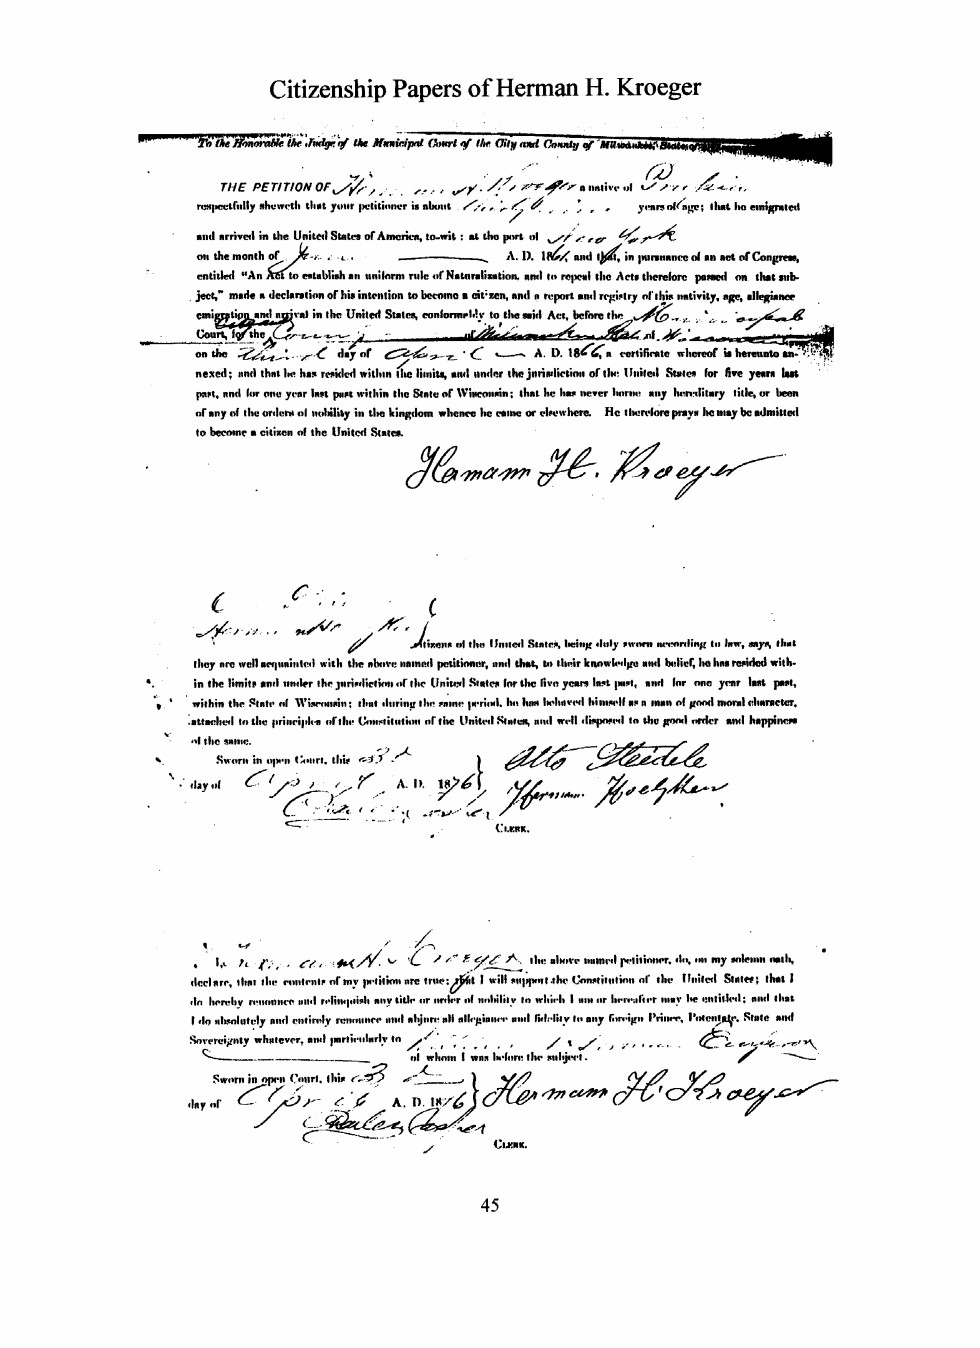 Citizenship Papers of Herman H. Kroeger
To the Honorable the Judge of the Municipal Court of the City and County of Milwaukee, State of
THE PETITION OF H. Kroeger a native of
respectfully sheweth that your petitioner is about years of age; that he emigrated
and arrived in the United States of America, to-wit: at the port of New York
on the month of A. D. 186 and that, in pursuance of an act of Congress,
entitled "An Act to establish an uniform rule of Naturalization, and to repeal the Acts therefore passed on that sub-
ject," made a declaration of his intention to become a citizen, and a report and registry of this nativity, age, allegiance
emigration and arrival in the United States, conformably to the said Act, before the Municipal
Court, for the County of Milwaukee State of Wisconsin
on the Third day of April A. D. 1866, a certificate whereof is hereunto an-
nexed; and that he has resided within the limits, and under the jurisdiction of the United States for five years last
past, and for one year last past within the State of Wisconsin; that he has never borne any hereditary title, or been
of any of the orders of nobility in the kingdom whence he came or elsewhere. He therefore prays he may be admitted
to become a citizen of the United States.
Hermann H. Kroeger
Herman
citizens of the United States, being duly sworn according to law, says, that
they are well acquainted with the above named petitioner, and that, to their knowledge and belief, he has resided with-
in the limits and under the jurisdiction of the United States for the five years last past, and for one year last past,
within the State of Wisconsin; that during the same period, he has behaved himself as a man of good moral character,
attached to the principles of the Constitution of the United States, and well disposed to the good order and happiness
of the same.
Sworn in open Court, this 3d
day of April A. D. 1876
Otto Steidele
Herman
CLERK.
H. Kroeger the above named petitioner, do, on my solemn oath,
declare, that the contents of my petition are true; that I will support the Constitution of the United States; that I
do hereby renounce and relinquish any title or order of nobility to which I am or hereafter may be entitled; and that
I do absolutely and entirely renounce and abjure all allegiance and fidelity to any foreign Prince, Potentate, State and
Sovereignty whatever, and particularly to German Emperor
of whom I was before the subject.
Sworn in open Court, this 3d
day of April A. D. 1876
Hermann H. Kroeger
CLERK.
45